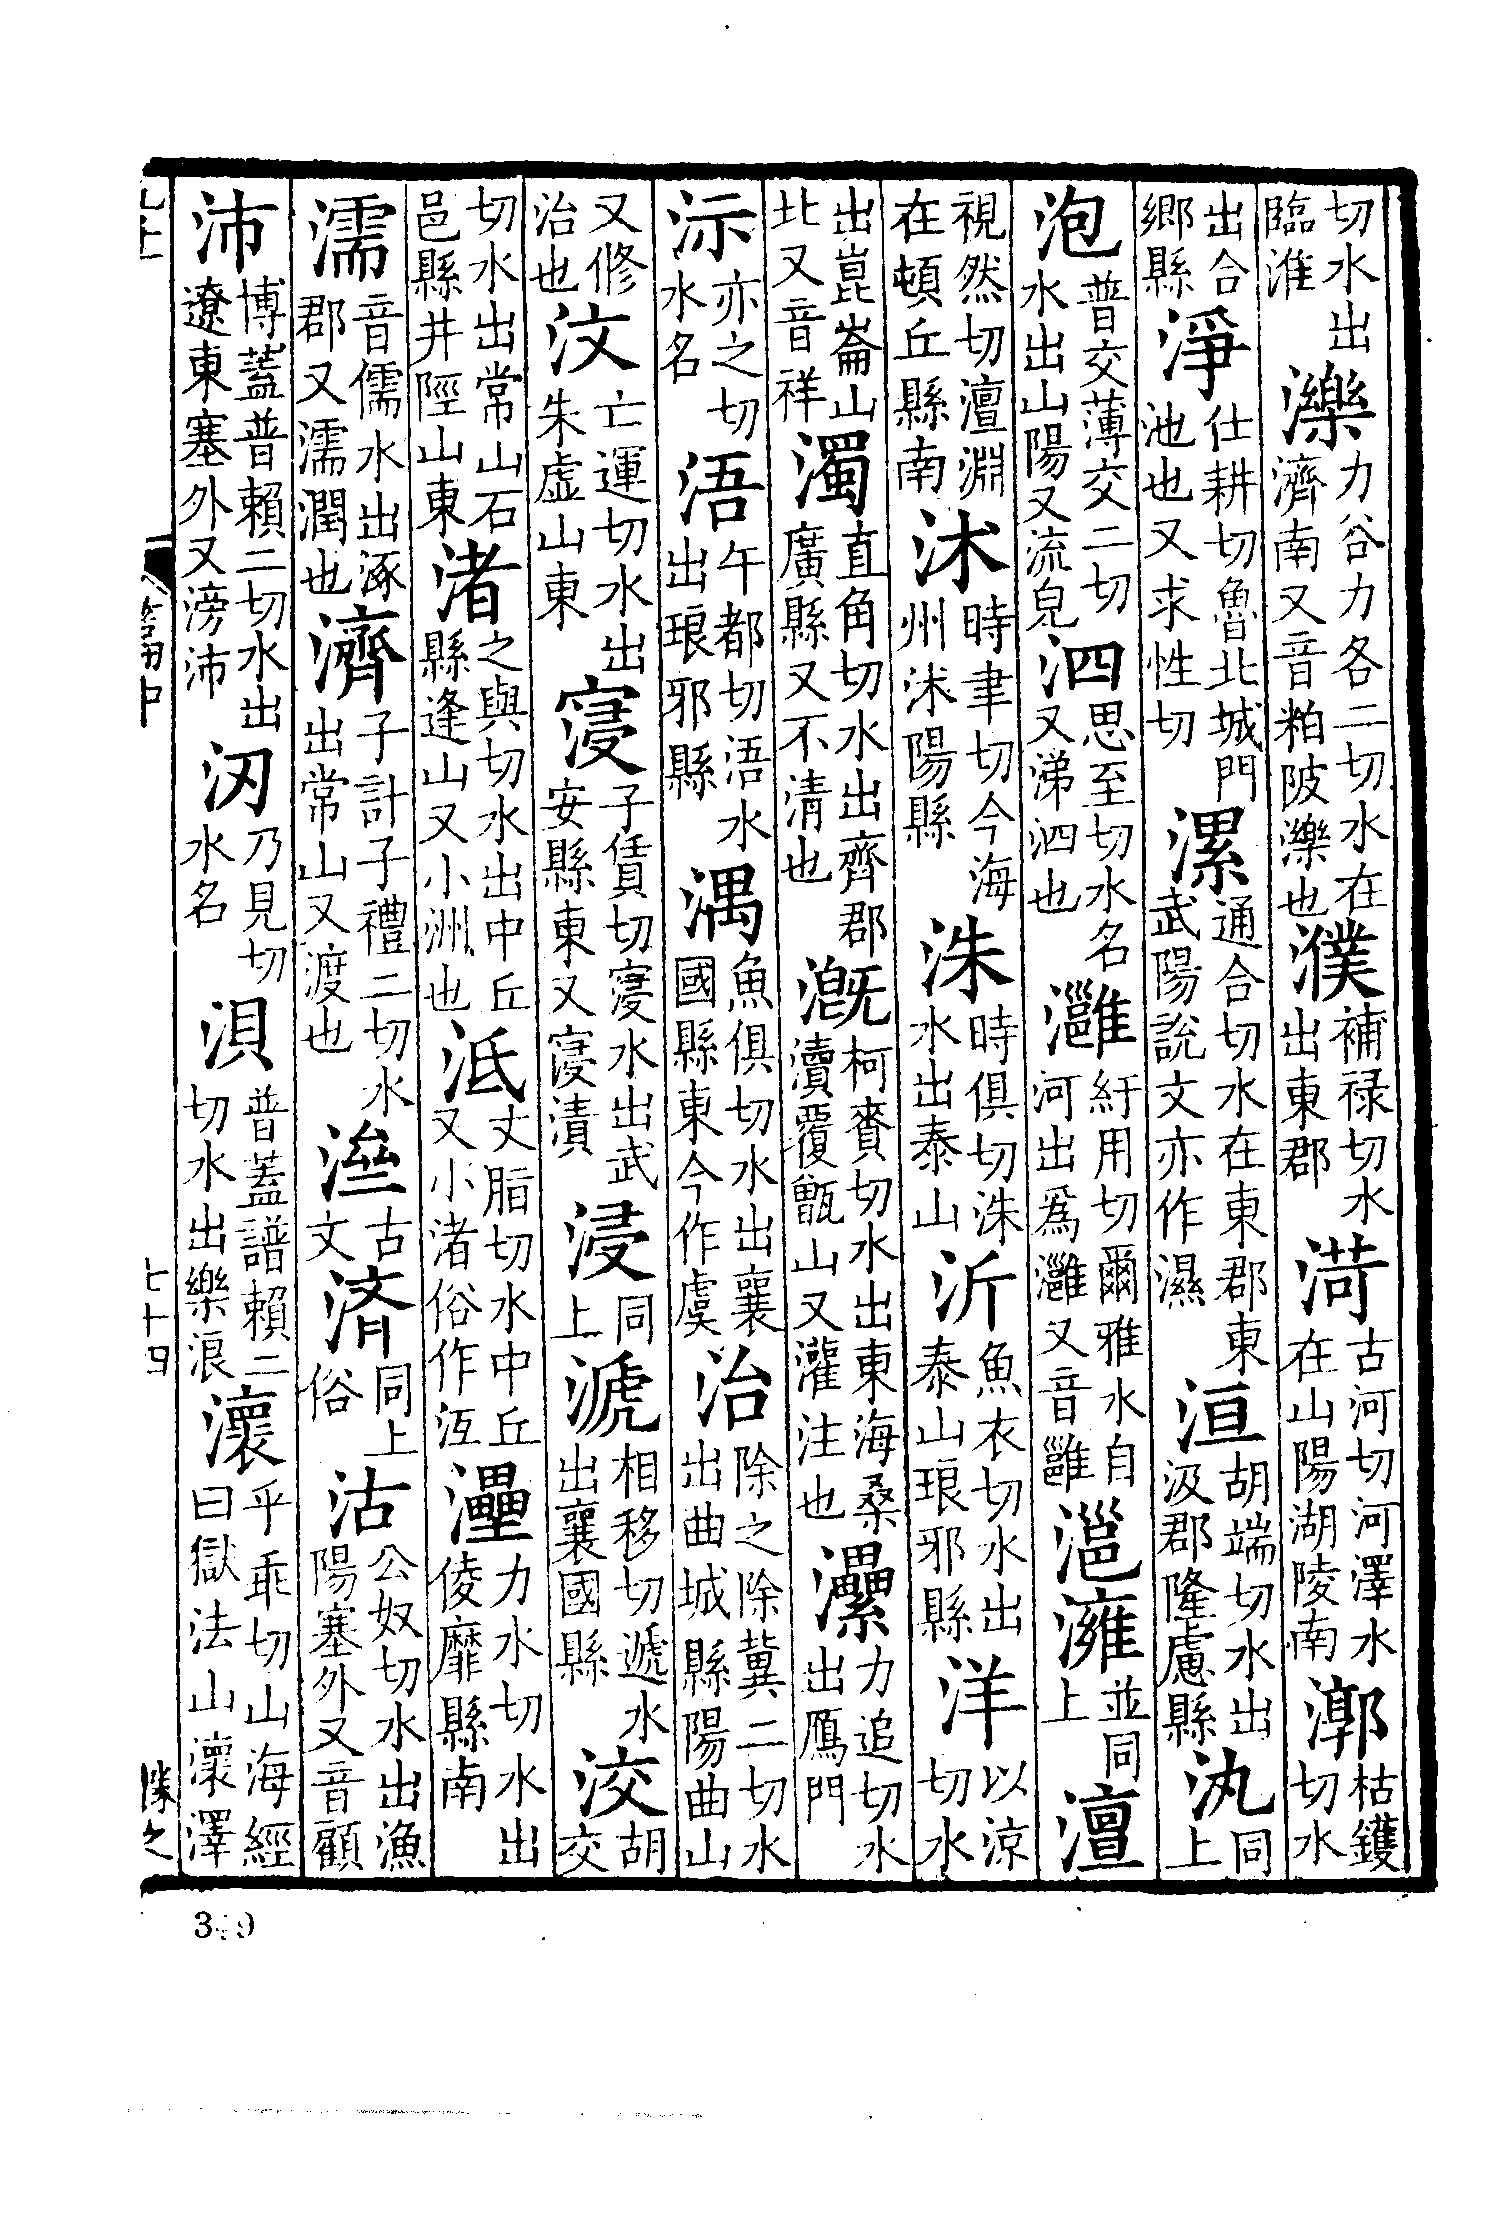 切水出臨淮濼力谷力各二切水在濟南又音粕陂濼也濮補祿切水出東郡渮古河切河澤水在山陽湖陵南漷枯鑊切水
出合鄉縣淨仕耕切魯北城門池也又求性切漯通合切水在東郡東武陽說文亦作濕洹胡端切水出汲郡隆慮縣汍同上
泡普交薄交二切水出山陽又流皃泗思至切水名又涕泗也灉紆用切爾雅水自河出爲灉又音雝澭並同上澶
視然切澶淵在頓丘縣南沭時聿切今海州沭陽縣洙時俱切洙水出泰山沂魚衣切水出泰山琅邪縣洋以涼切水
出崑崙山北又音祥濁直角切水出齊郡廣縣又不清也漑柯賚切水出東海桑瀆覆甑山又灌注也灅力追切水出鴈門
沶亦之切水名浯午都切浯水出琅邪縣湡魚俱切水出襄國縣東今作虞治除之除冀二切水出曲城縣陽曲山
又修治也汶亡運切水出朱虛山東寖子賃切寖水出武安縣東又寖漬浸同上㴲相移切遞水出襄國縣洨胡交
切水出常山石邑縣井陘山東渚之與切水出中丘縣逢山又小洲也泜丈脂切水中丘又小渚俗作沍灅力水切水出俊靡縣南
濡音儒水出涿郡又濡潤也濟子計子禮二切水出常山又渡也古文済同上俗沽公奴切水出漁陽塞外又音顧
沛博蓋普賴二切水出遼東塞外又滂沛㲽乃見切水名浿普蓋譜賴二切水出樂浪瀤乎乖切山海經曰獄法山瀤澤
七十四
349